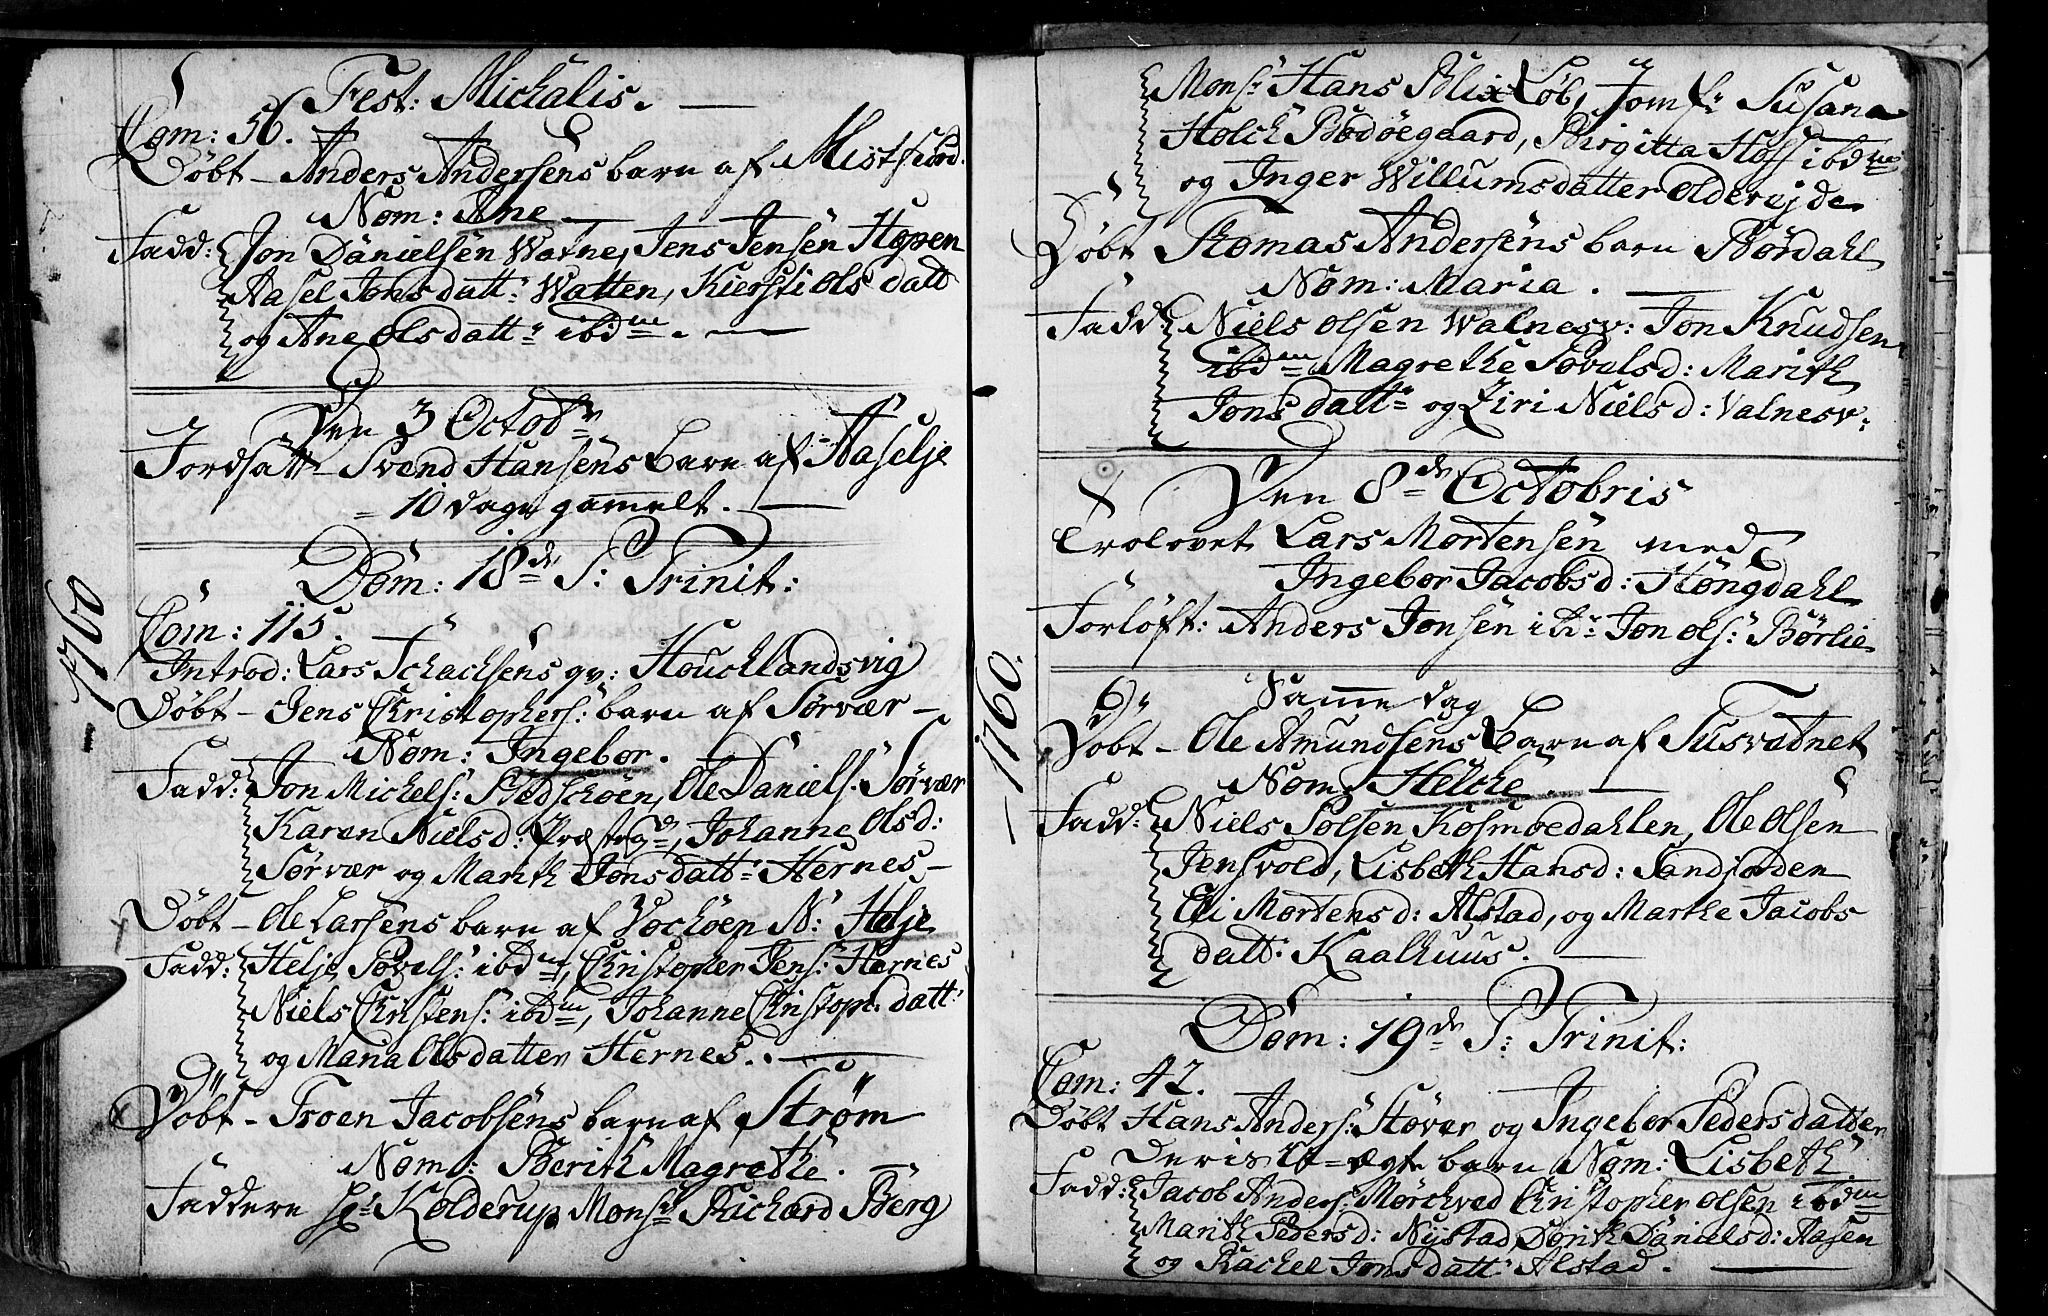 Fest: Michalis.
Com: 56.
Døbt - Anders Andersens barn af Mistfiord.
Nom: Ane
Fadd: Jon Danielsen Watne, Jens Jensen Hopen
Aasel Jonsdatt: Watten, Kiersti Olsdatt
og Ane Olsdatt: ibdm.
Den 3 Octobr
Jordsatt Svend Hansens Barn af Aaselje
= 10 dage gammelt.
Dom: 18de P: Trinit:
1760
Com: 115.
Introd: Lars Zchachsens qv: Houcklandsvig
Døbt - Jens Christophers: barn af Sørvær
Nom: Ingebor.
Fadd: Jon Michels: Bedschøen, Ole Daniels. Sørvær
Karen Nielsd: Præstegd, Johanne Olsd:
Sørvær og Marith Jonsdatt: Hernes
Døbt - Ole Larsens barn af Vochøen N: Helje
Fadd: Helje Povels: ibdm, Christopher Jens: Hernes
Niels Christens: ibdm, Johanne Christoph: datt:
og Maria Olsdatter Hernes.
Døbt - Troen Jacobsens barn af Strøm
Nom: Berith Magrethe.
Faddere Hr Kolderup Monsr Richard Berg
Monsr Hans Blix Løb, Jomfr Susana
Holck Bodøegaard, Birgitta Hoff ibdm
og Inger Willumsdatter Oldereijde
Døbt Thomas Andersens barn Børdahl
Nom: Maria.
Fadd: Niels Olsen Valnesv: Jon Knudsen
ibdm Magrethe Povelsd: Marith
Jonsdatt: og Ziri Nielsd: Valnesv:
Den 8de Octobris
Trolovet Lars Mortensen med
Ingebor Jacobsd: Høngdahl
Forløft: Anders Jonsen ibd: Jon Ols: Børlie
1760.
Samme dag
Døbt - Ole Amundsens Barn af Tusvatnet
Nom: Helche.
Fadd: Niels Polsen Kosmoedahlen, Ole Olsen
Jensvold, Lisbeth Hansd: Sandjorden
Eli Mortensd: Alstad, og Marthe Jacobs
datt: Kaalhuus.
Dom: 19de P: Trinit:
Com: 42.
Døbt Hans Anders: Høver og Ingebor Pedersdatter
Deris U=ægte barn Nom: Lisbeth
Fadd: Jacob Anders: Mørchved Christopher Olsen ibdm
Marith Pedersd: Nystad, Dorith Danielsd: Aasen
og Rachel Jonsdatt: Alstad.